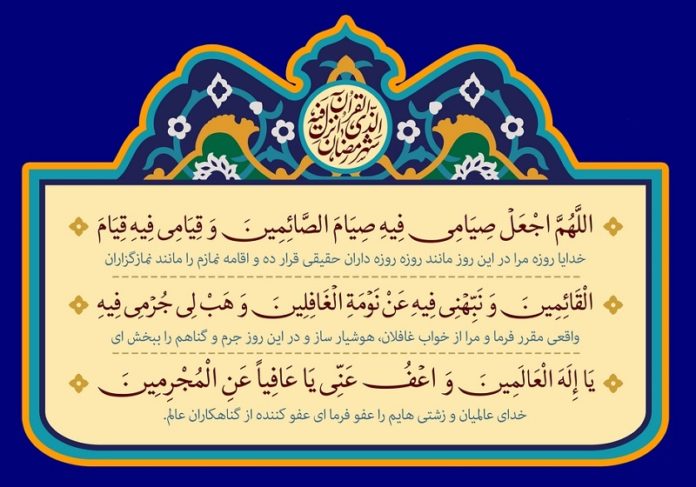 شَهْرُ رَمَضَانَ الَّذِي أُنْزِلَ فِيهِ الْقُرْآنُ
اللَّهُمَّ اجْعَلْ صِيَامِي فِيهِ صِيَامَ الصَّائِمِينَ وَ قِيَامِي فِيهِ قِيَامَ
خدایا روزه مرا در این روز مانند روزه روزه داران حقیقی قرار ده و اقامه نمازم را مانند نمازگزاران
الْقَائِمِينَ وَ نَبِّهْنِي فِيهِ عَنْ نَوْمَةِ الْغَافِلِينَ وَ هَبْ لِي جُرْمِي فِيهِ
واقعی مقرر فرما و مرا از خواب غافلان، هوشیار ساز و در این روز جرم و گناهم را ببخش ای
يَا إِلَهَ الْعَالَمِينَ وَ اعْفُ عَنِّي يَا عَافِياً عَنِ الْمُجْرِمِينَ
خدای عالمیان و زشتی هایم را عفو فرما ای عفو کننده از گناهکاران عالم.